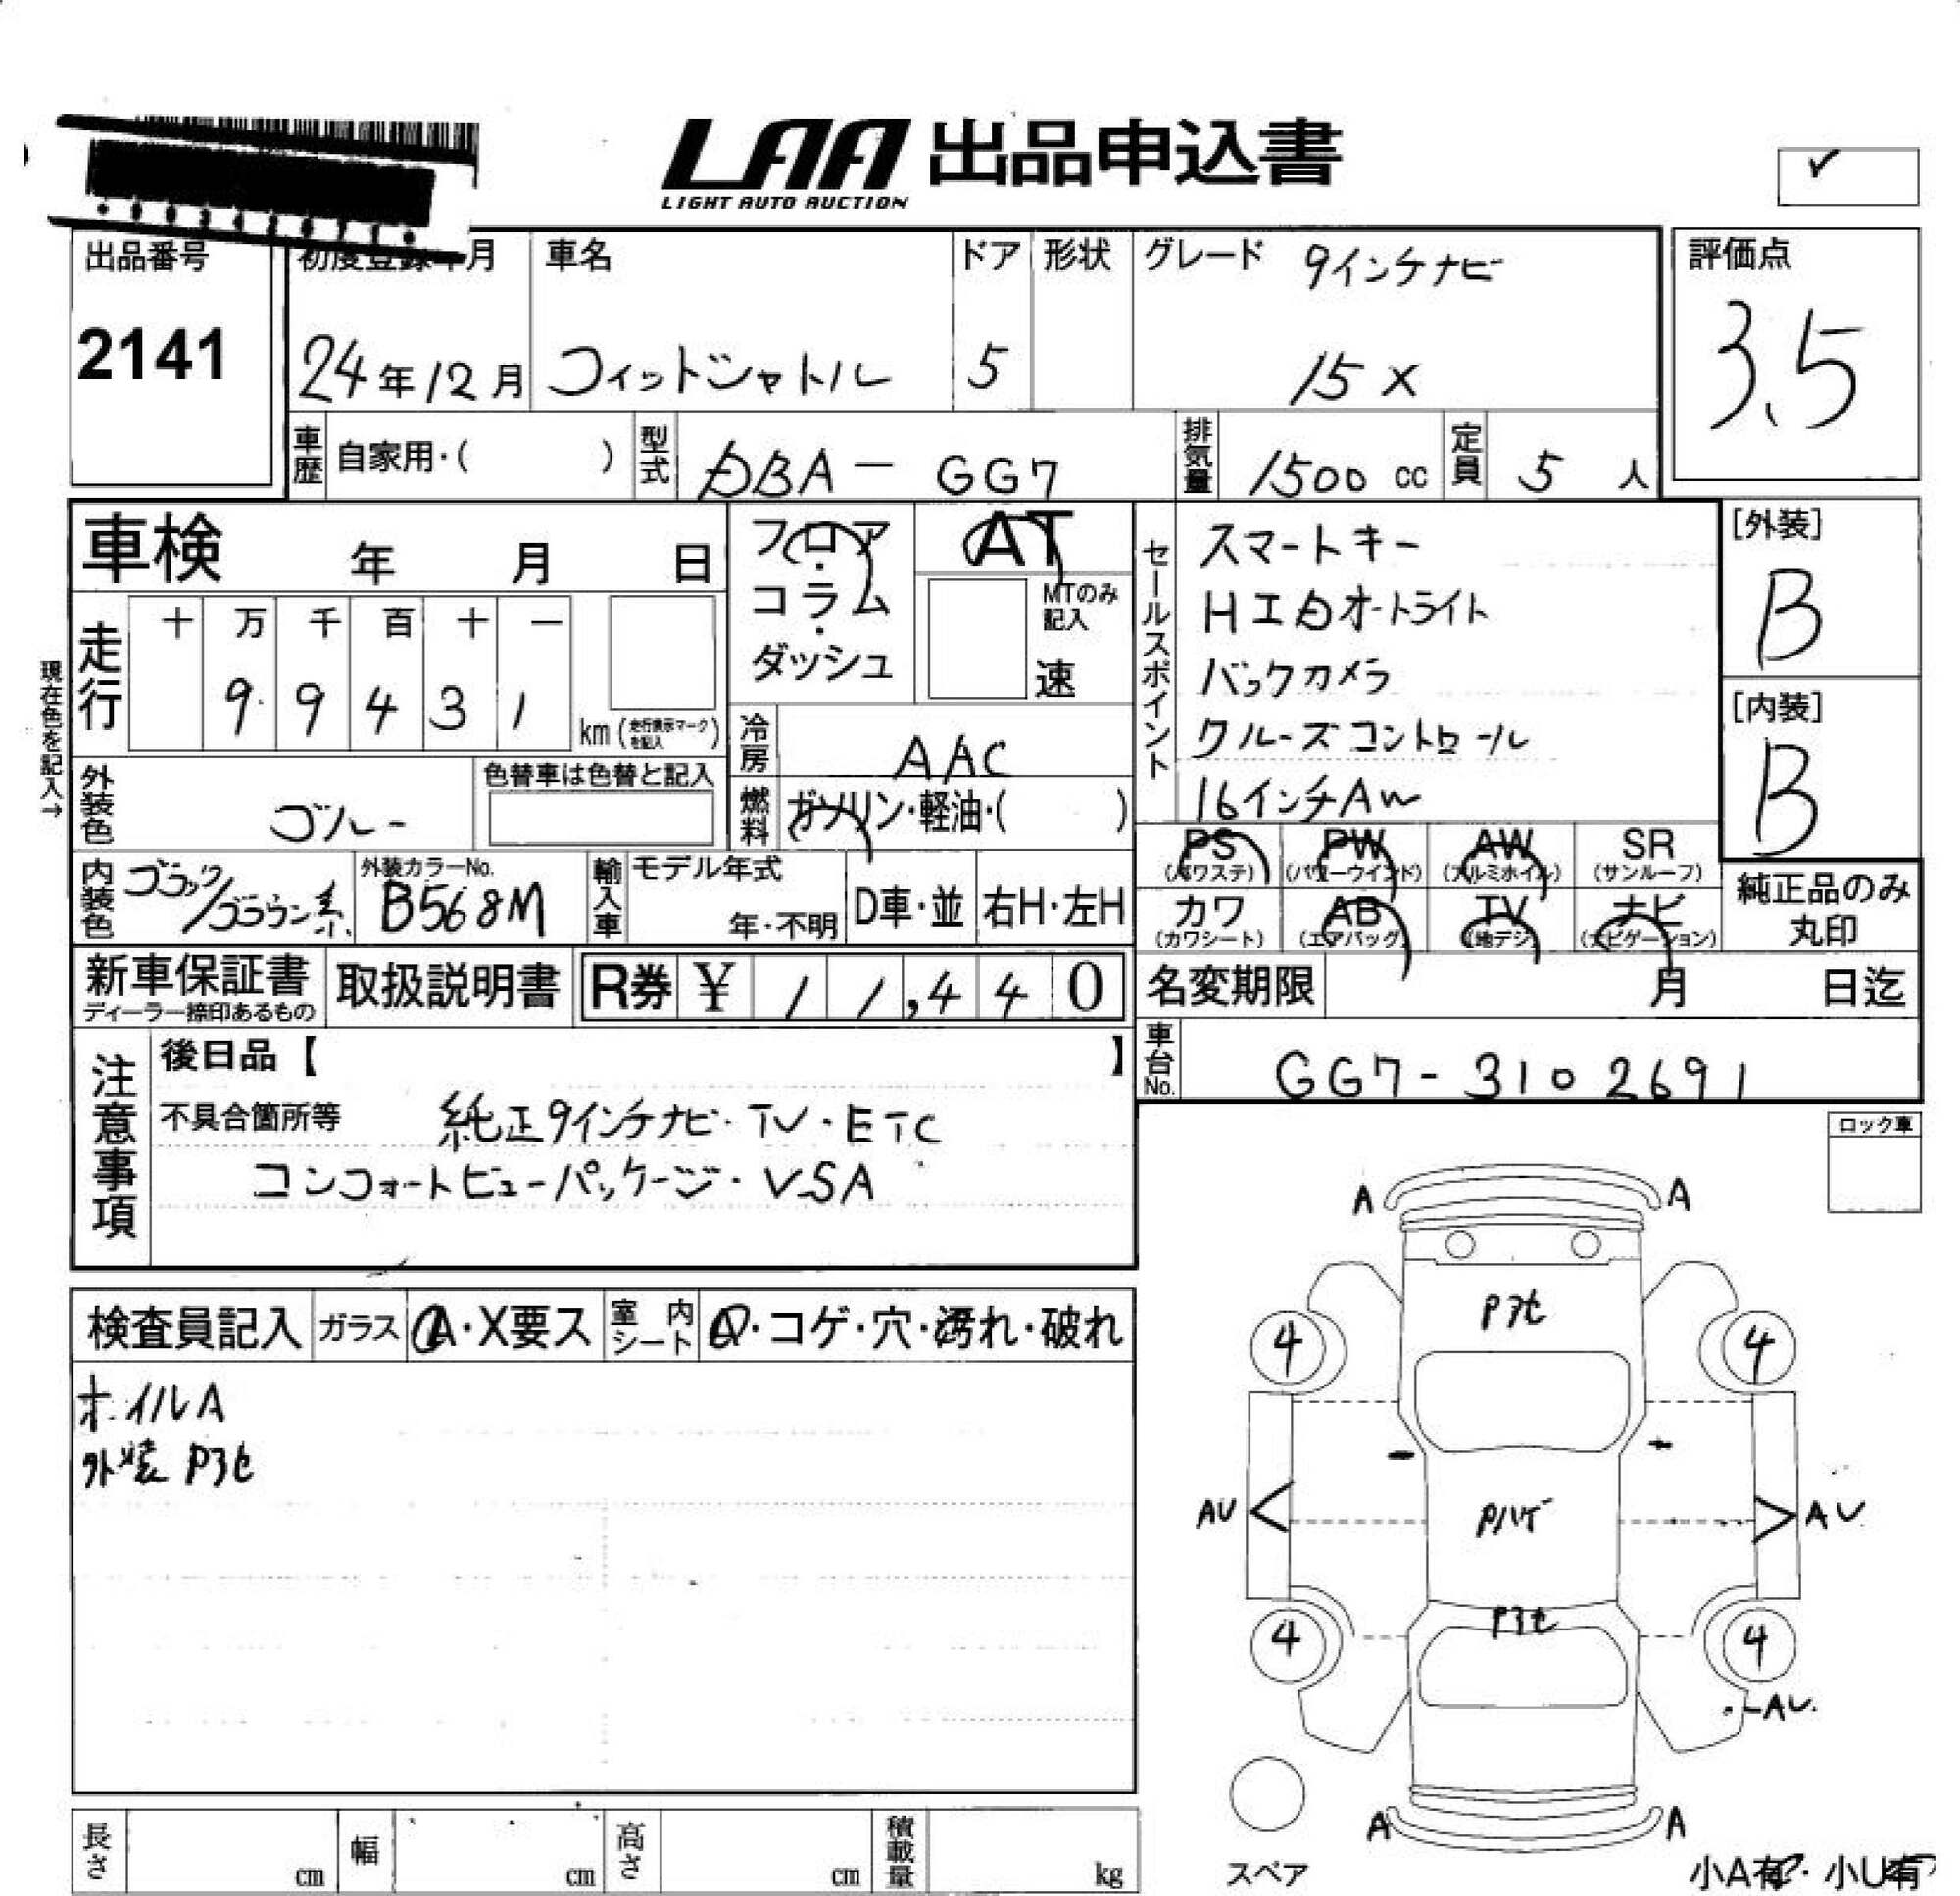 LAA 出品申込書
LIGHT AUTO AUCTION
出品番号
2141
初度登録年月
24年12月
車名
フィットシャトル
ドア
5
形状
グレード 9インチナビ
15X
評価点
3.5
車歴 自家用・( )
型式 DBA－GG7
排気量 1500cc
定員 5人
車検 年 月 日
フロア・コラム・ダッシュ
AT
MTのみ記入
速
セールスポイント
スマートキー
HIDオートライト
バックカメラ
クルーズコントロール
16インチAW
[外装]
B
[内装]
B
現在色を記入→
走行
十 万 千 百 十 一
9 9 4 3 1
km (走行表示マークを記入)
冷房 AAC
燃料 ガソリン・軽油・( )
外装色 ブルー
色替車は色替と記入
内装色 ブラック/ブラウン系
外装カラーNo. B568M
輸入車 モデル年式
年・不明
D車・並
右H・左H
PS (パワステ)
PW (パワーウインド)
AW (アルミホイル)
SR (サンルーフ)
カワ (カワシート)
AB (エアバッグ)
TV (地デジ)
ナビ (ナビゲーション)
純正品のみ丸印
新車保証書
ディーラー捺印あるもの
取扱説明書
R券 ¥ 11,440
名変期限 月 日迄
車台No. GG7-3102691
注意事項
後日品【 】
不具合箇所等 純正9インチナビ・TV・ETC
コンフォートビューパッケージ・VSA
ロック車
検査員記入
ガラス A・X要ス
室内シート ・コゲ・穴・汚れ・破れ
ホイルA
外装 Pアセ
A A
Pアセ
4 4
AU Pハゲ AU
Pアセ
4 4
AU
A A
スペア
小A有・小U有
長さ cm
幅 cm
高さ cm
積載量 kg